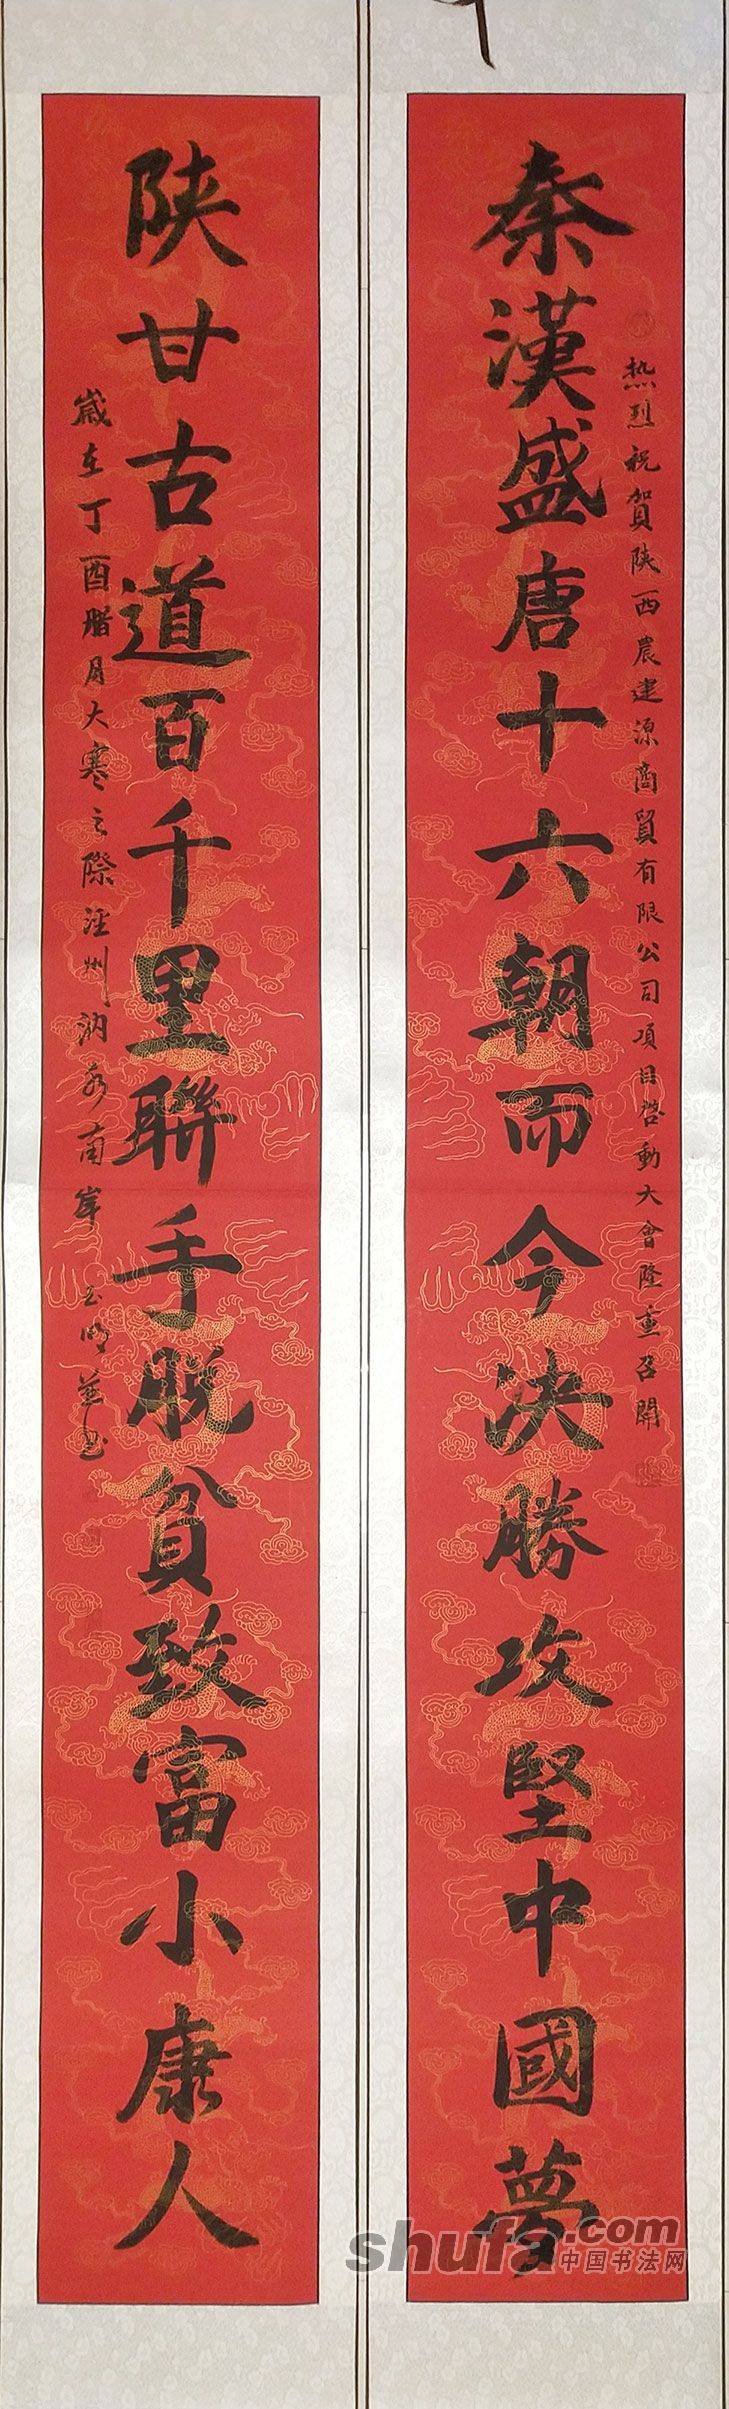 熱烈祝賀陝西農建源商貿有限公司項目啓動大會隆重召開
秦漢盛唐十六朝而今決勝攻堅中國夢
陝甘古道百千里聯手脫貧致富小康人
歲在丁酉腊月大寒之際涇州汭水南岸
shufa.com
中国书法网